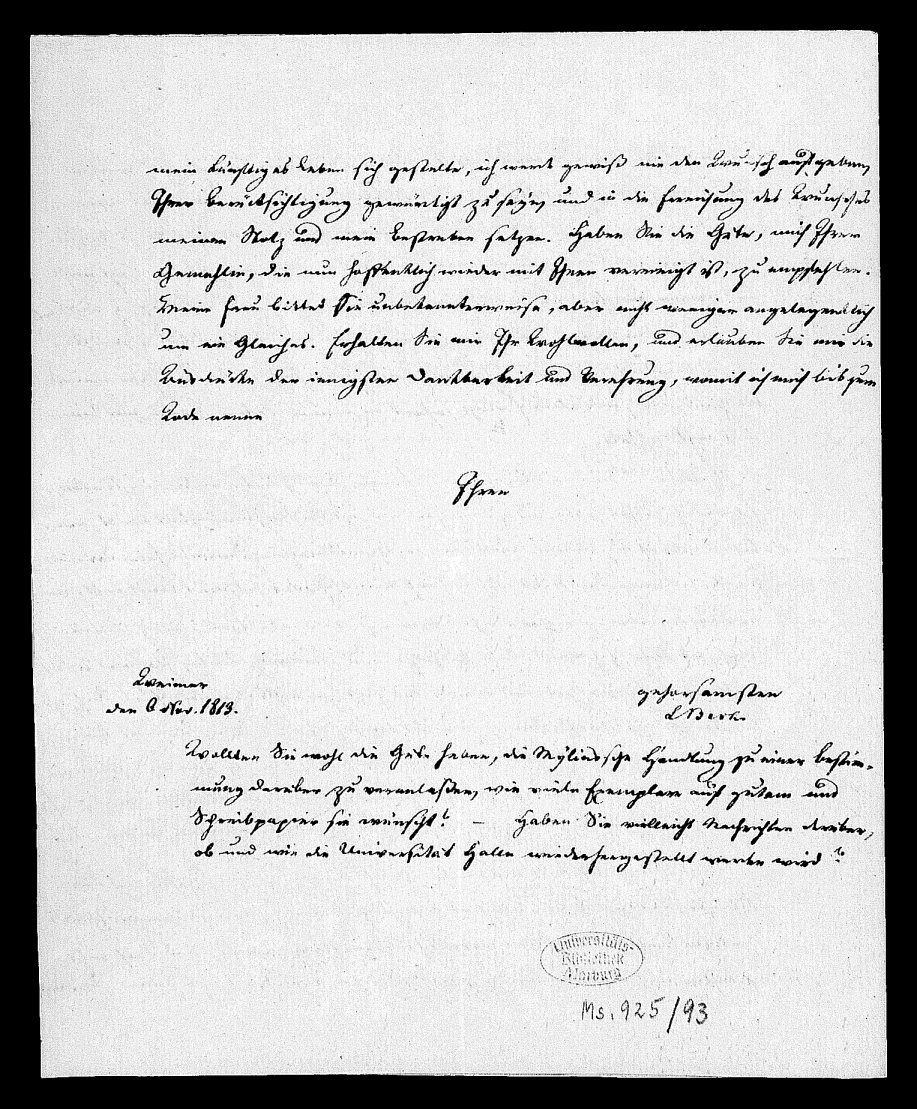 mein künftiges Leben sich gestalte, ich werde gewiß nie den Wunsch aufgeben,
Ihrer Berücksichtigung gewürdigt zu seyn, und in die Erreichung des Wunsches
meinen Stolz und mein Bestreben setzen. Haben Sie die Güte, mich Ihrer
Gemahlin, die nun hoffentlich wieder mit Ihnen vereinigt ist, zu empfehlen.
Meine Frau bittet Sie unbekannterweise, aber nicht weniger angelegentlich
um ein Gleiches. Erhalten Sie mir Ihr Wohlwollen, und erlauben Sie mir die
Ausdrücke der innigsten Dankbarkeit und Verehrung, womit ich mich bis zum
Tode nenne
Ihren
Weimar
den 6 Nov. 1813.
gehorsamsten
Wollten Sie wohl die Güte haben, die Myliussche Handlung zu einer Bestim-
mung darüber zu veranlaßen, wie viele Exemplare auf gutem und
Schreibpapier sie wünscht? — Haben Sie vielleicht Nachrichten darüber,
ob und wie die Universität Halle wiederhergestellt werden wird?
Universitäts-
Bibliothek
Marburg
Ms. 925/93